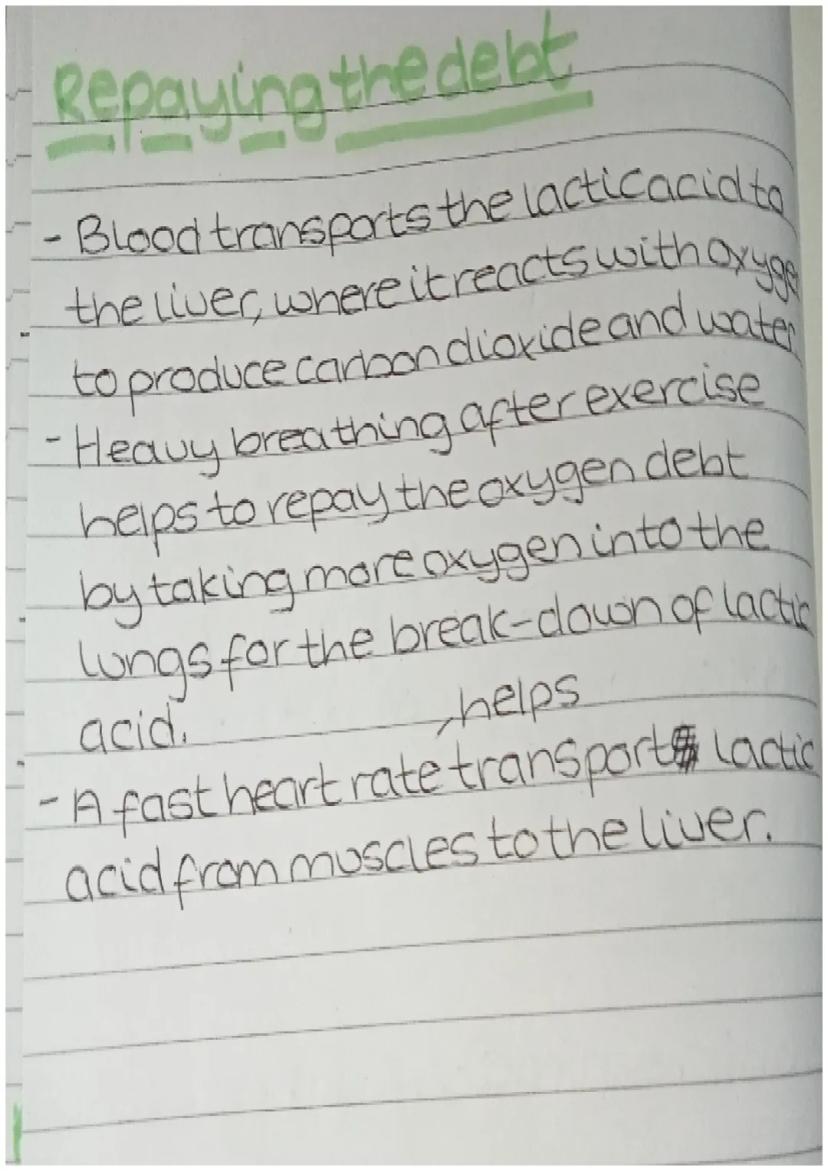 Repaying the debt
- Blood transports the lactic acid to
the liver, where it reacts with oxyge
to produce carbon dioxide and water
- Heavy breathing after exercise
helps to repay the oxygen debt
by taking more oxygen into the
lungs for the break-down of lactic
acid.
, helps
- A fast heart rate transport lactic
acid from muscles to the liver.